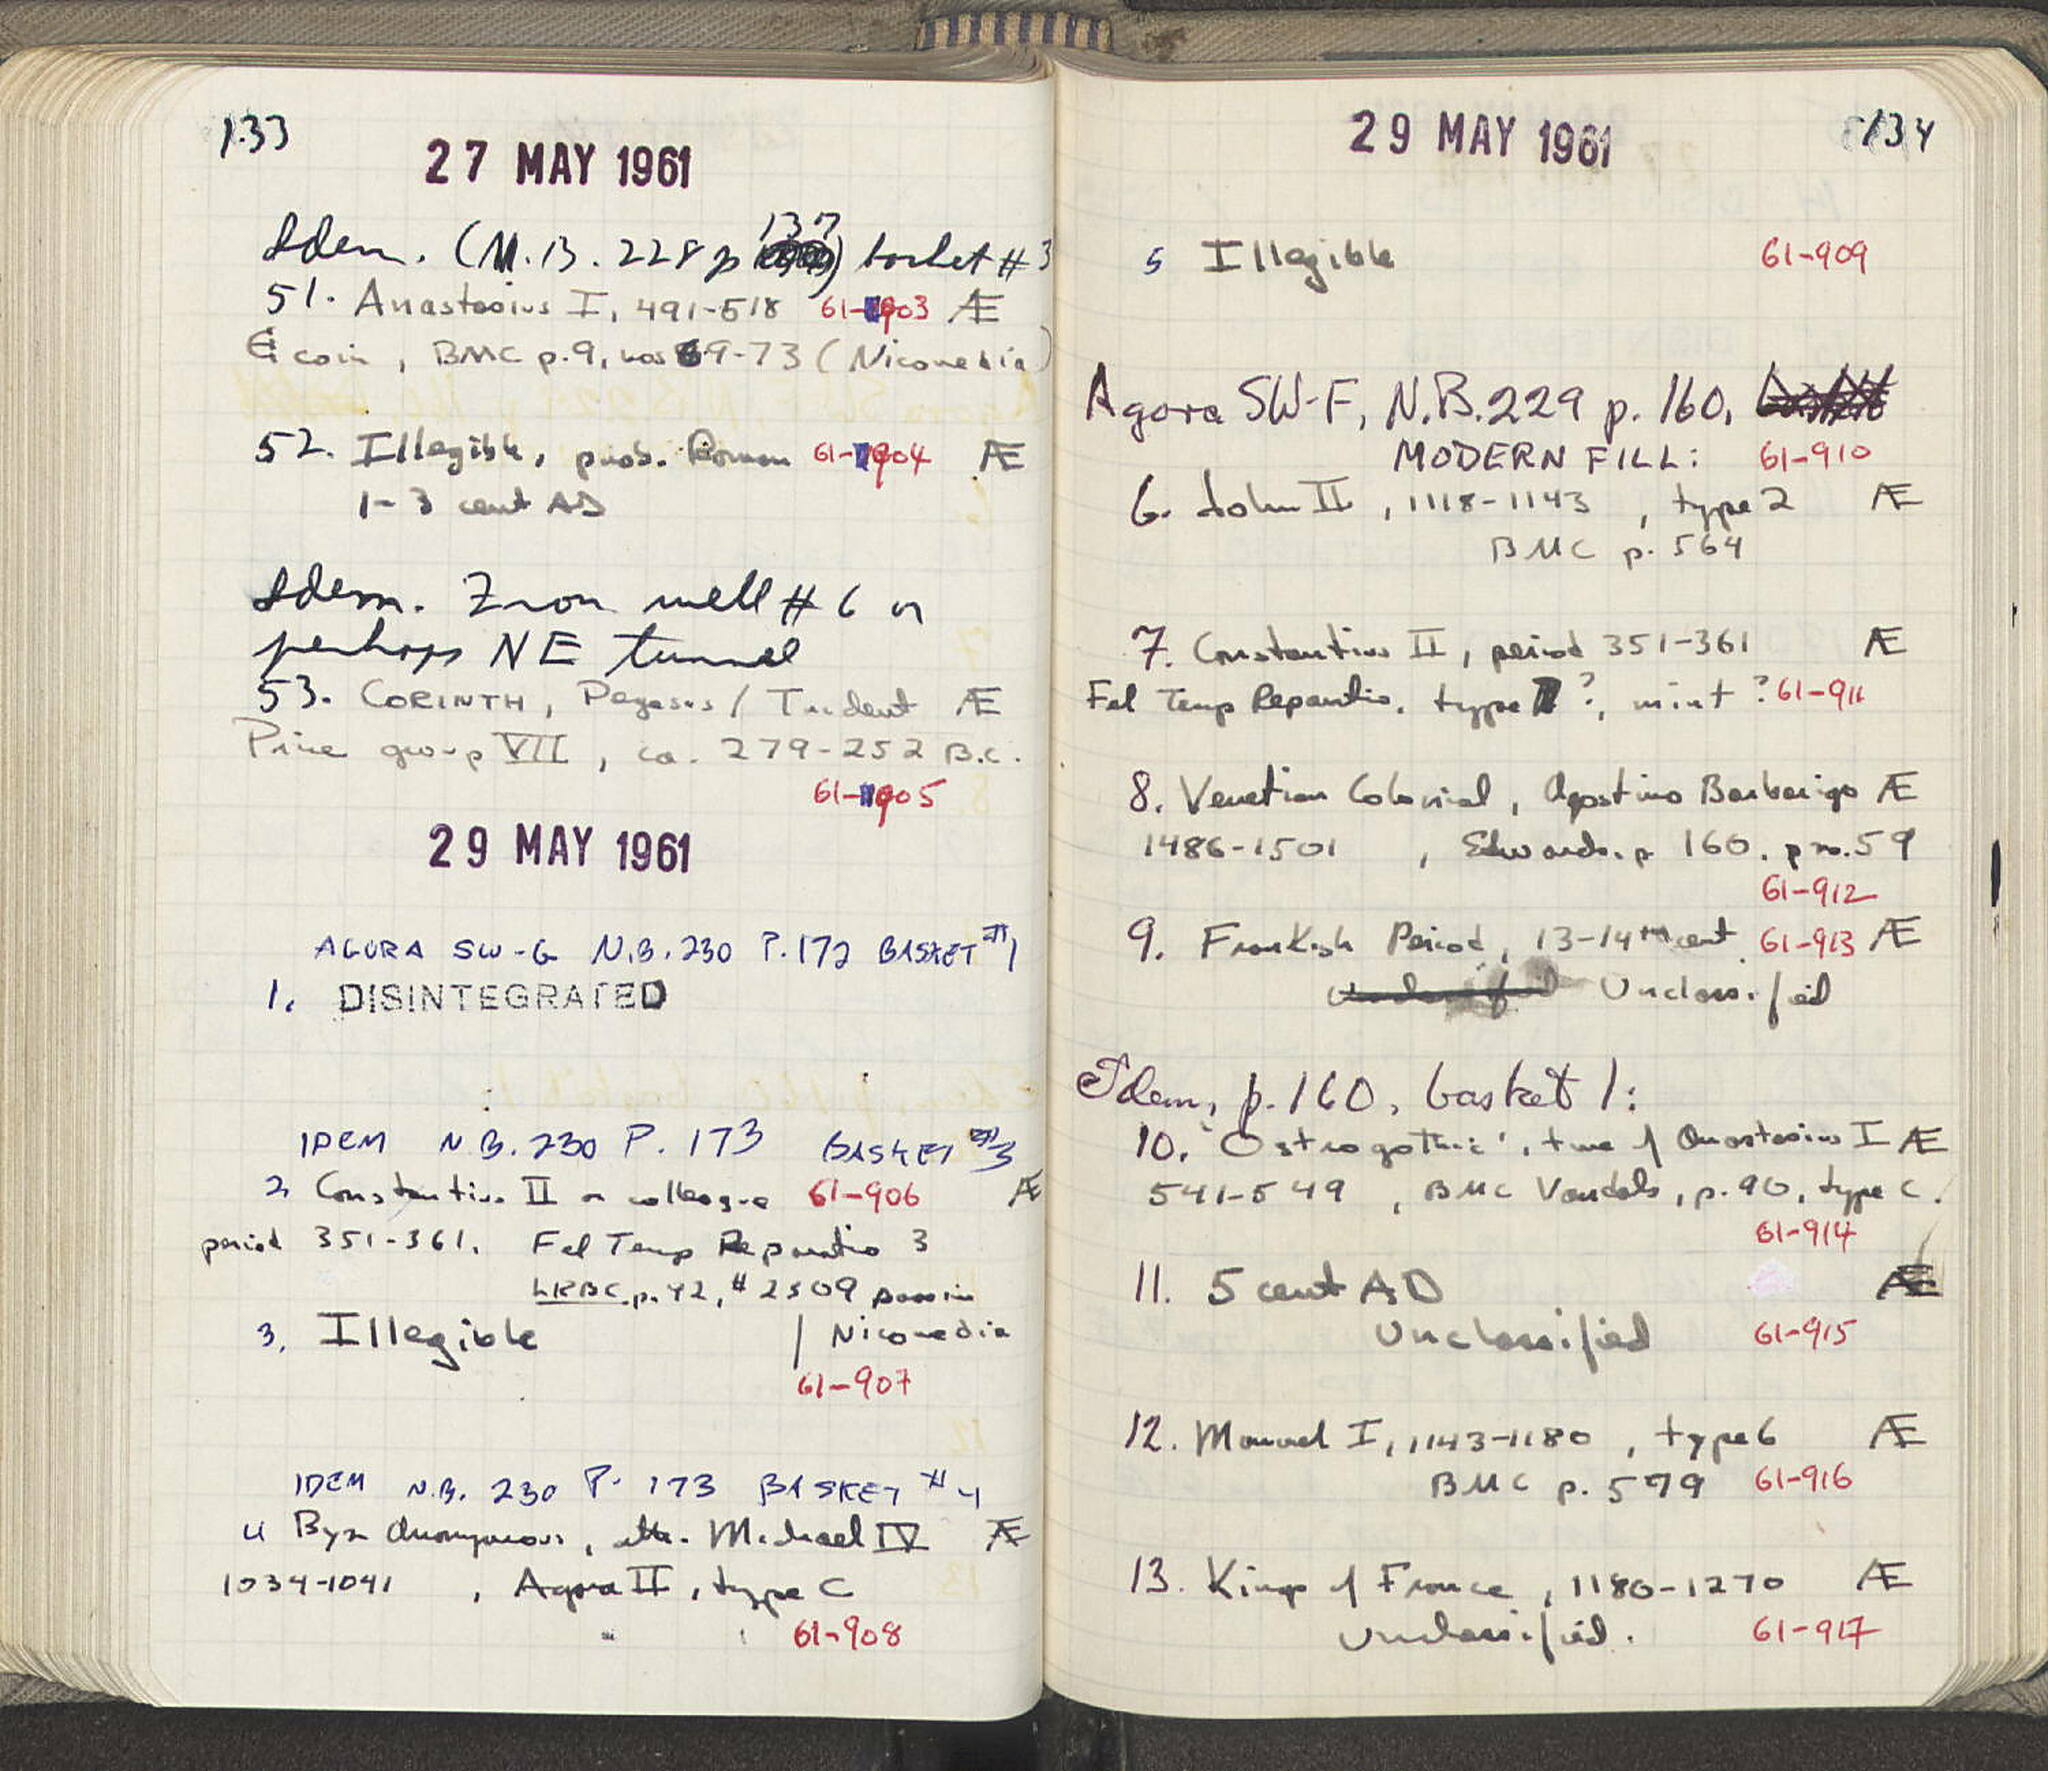 133
27 MAY 1961
Idem. (N.B. 228 p 137) basket #3
51. Anastasius I, 491-518 61-903 Æ
coin, BMC p.9, nos 69-73 (Nicomedia)
52. Illegible, prob. Roman 61-904 Æ
1-3 cent AD
Idem. From well #6 or
perhaps NE tunnel
53. CORINTH, Pegasus / Trident Æ
Price group VII, ca. 279-252 B.C.
61-905
29 MAY 1961
AGORA SW-G N.B. 230 P. 172 BASKET #1
1. DISINTEGRATED
IDEM N.B. 230 P. 173 BASKET #3
2 Constantius II or colleague 61-906 Æ
period 351-361. Fel Temp Reparatio 3
LRBC p. 92, # 2309 passim
3. Illegible | Nicomedia
61-907
IDEM N.B. 230 P. 173 BASKET #4
4 Byz Anonymous, attr. Michael IV Æ
1034-1041, Agora II, type C
61-908
134
29 MAY 1961
5 Illegible 61-909
Agora SW-F, N.B. 229 p. 160,
MODERN FILL: 61-910
6. John II, 1118-1143, type 2 Æ
BMC p. 564
7. Constantius II, period 351-361 Æ
Fel Temp Reparatio, type ?, mint ? 61-911
8. Venetian Colonial, Agostino Barbarigo Æ
1486-1501, Edwards. p 160. no. 59
61-912
9. Frankish Period, 13-14th cent 61-913 Æ
Unclassified Unclassified
Idem, p. 160, basket 1:
10. 'Ostrogothic', time of Anastasius I Æ
541-549, BMC Vandals, p. 90, type C.
61-914
11. 5 cent AD Æ
Unclassified 61-915
12. Manuel I, 1143-1180, type 6 Æ
BMC p. 579 61-916
13. Kings of France, 1180-1270 Æ
Unclassified. 61-917